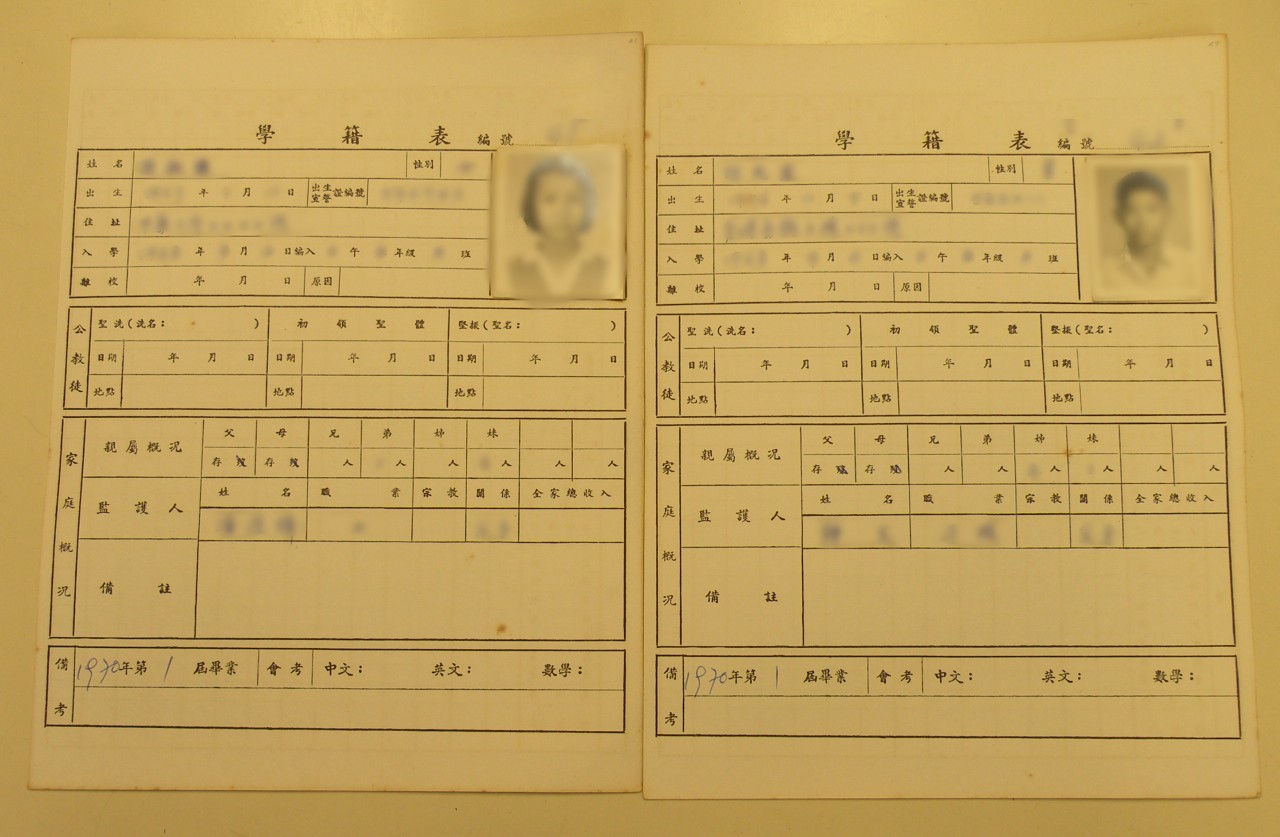 學籍表 編號
姓名 性別
出生 年 月 日 出生宣誓證編號
住址
入學 年 月 日編入 午 年級 班
離校 年 月 日 原因
公教徒
聖洗(洗名: ) 初領聖體 堅振(聖名: )
日期 年 月 日 日期 年 月 日 日期 年 月 日
地點 地點 地點
家庭概況
親屬概況 父 母 兄 弟 姊 妹
存歿 存歿 人 人 人 人 人 人
監護人 姓名 職業 宗教 關係 全家總收入
備註
備考 1970年第1屆畢業 會考 中文: 英文: 數學:
學籍表 編號
姓名 性別
出生 年 月 日 出生宣誓證編號
住址
入學 年 月 日編入 午 年級 班
離校 年 月 日 原因
公教徒
聖洗(洗名: ) 初領聖體 堅振(聖名: )
日期 年 月 日 日期 年 月 日 日期 年 月 日
地點 地點 地點
家庭概況
親屬概況 父 母 兄 弟 姊 妹
存歿 存歿 人 人 人 人 人 人
監護人 姓名 職業 宗教 關係 全家總收入
備註
備考 1970年第1屆畢業 會考 中文: 英文: 數學: